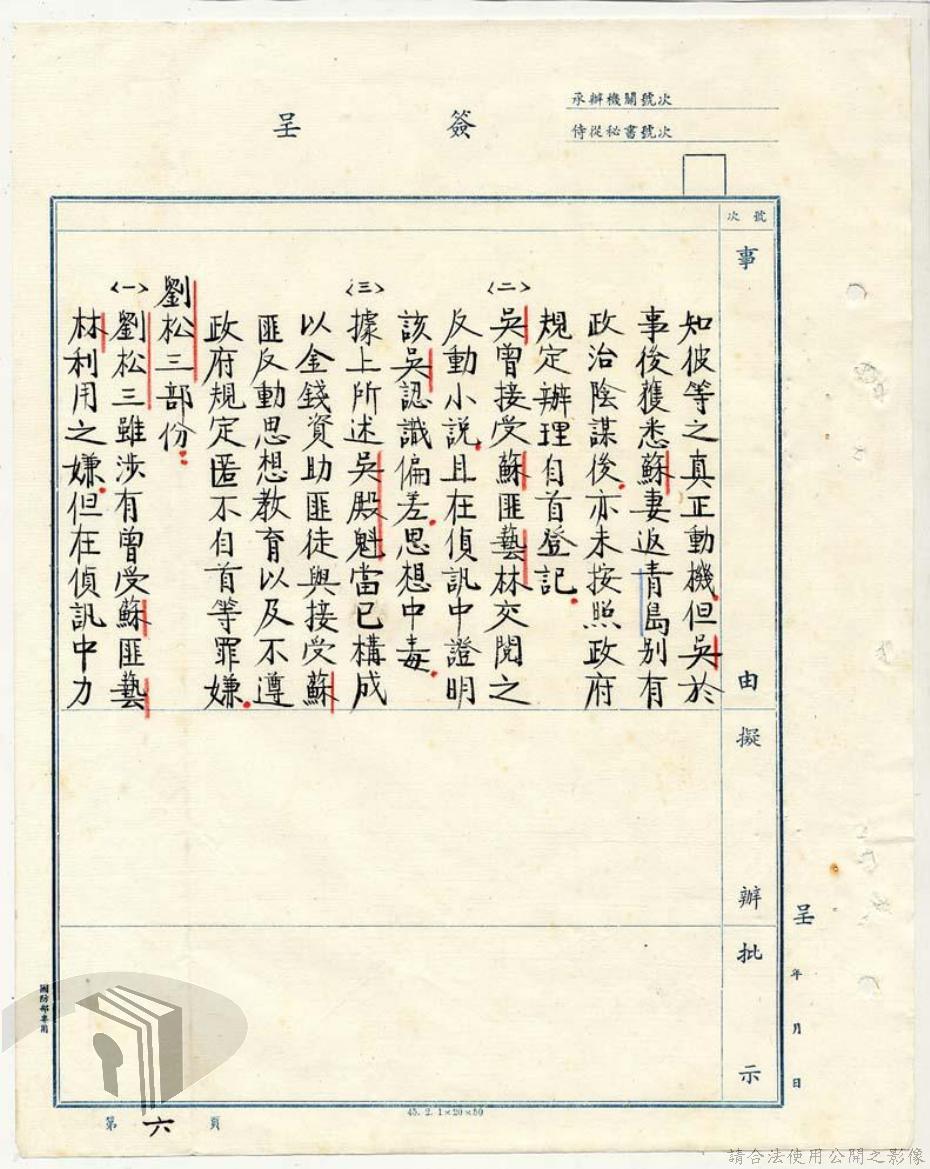 承辦機關號次
侍從秘書號次
簽呈
號次
事由
擬辦
批示
知彼等之真正動機。但吳於
事後獲悉蘇妻返青島別有
政治陰謀後。亦未按照政府
規定辦理自首登記。
〈二〉吳曾接受蘇匪藝林交閱之
反動小說。且在偵訊中證明
該吳認識偏差。思想中毒。
〈三〉據上所述吳殿魁當已構成
以金錢資助匪徒與接受蘇
匪反動思想教育以及不遵
政府規定匿不自首等罪嫌。
劉松三部份：
〈一〉劉松三雖涉有曾受蘇匪藝
林利用之嫌。但在偵訊中力
呈 年 月 日
國防部專用
第六頁
45. 2. 1×20×50
請合法使用公開之影像